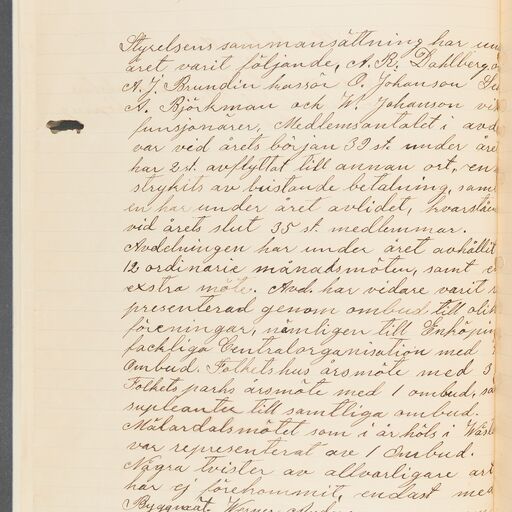 Styrelsens sammansättning har und
året varit följande, A. R. Dahlberg, o
A. J. Brundin kassör O. Johanson
A. Björkman och W. Johanson vi
funsjonärer, Medlemsantalet i avd
var ved årets början 39 st. under åre
har 2 st. avflyttat till annan ort, en
strykits av bristande betalning, sam
en har under året avlidet, kvarståe
vid årets slut 35 st. medlemmar.
Avdelningen har under året avhållit
12 ordinarie månadsmöten, samt e
exstra möte. Avd. har vidare varit r
presenterad genom ombud till olik
föreningar, nämligen till Enköpin
fackliga Centralorganisation med
Ombud. Folketshus årsmöte med 3
Folkets parks årsmöte med 1 ombud, sa
supleanter till samtliga ombud.
Mälardalsmötet som i år höls i Wäste
var representerat av 1 Ombud.
Några tvister av allvarligare art
har ej förekommit, endast med
Byggmäst. Werner